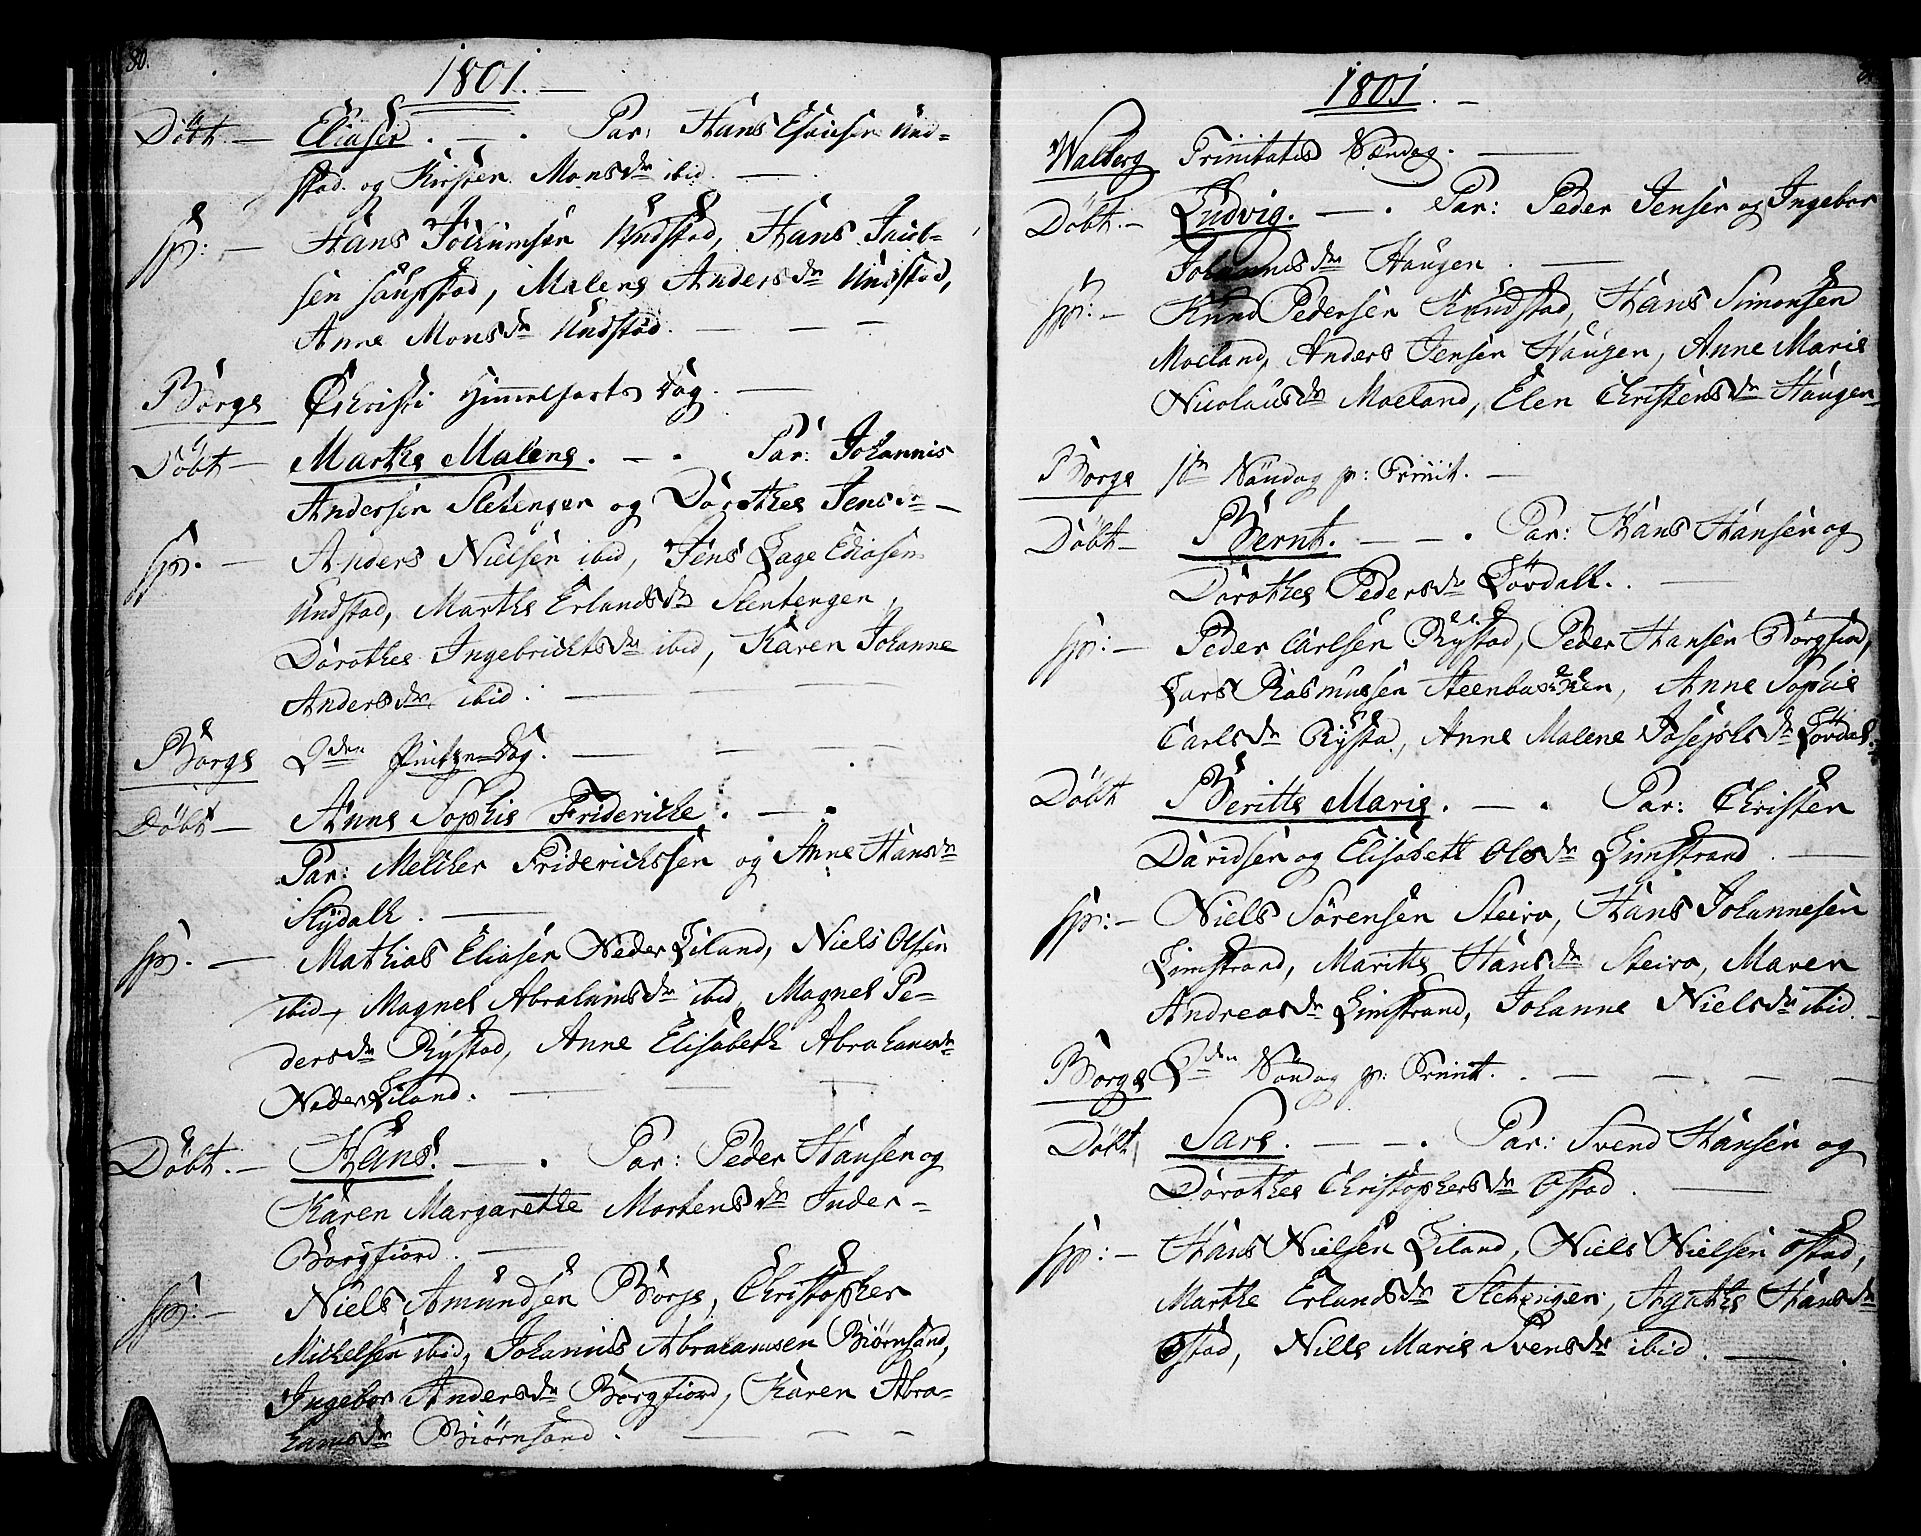 80.
1801. —
Döbt — Eliaser. — . Par: Hans Esaiesen Und-
stad og Kirsten Monsdr ibid. —
fp: — Hans Jochumsen Undstad, Hans Jacob-
sen Saupstad, Malene Andersdr Undstad,
Anne Monsdr Undstad. — — —
Borge Christi Himmelfarts Dag. —
Döbt — Marthe Malene. — . Par: Johannis
Andersen Sletengen og Dorothea Jensdr —
fp. — Anders Nielsen ibid, Jens Lage Eliasen
Undstad, Marthe Erlandsdr Slentengen,
Dorothea Ingebrichtsdr ibid, Karen Johanne
Andersdr ibid. —
Borge 2den Pintze-Dag. —
Döbt — Anne Sophie Friderikke. — .
Par: Melcher Friderichssen og Anne Hansdr
Slydalh. —
fp. — Mathias Eliasen Neder Liland, Niels Olsen
ibid, Magnel Abrahamsdr ibid, Magnel Pe-
dersdr Rystad, Anne Elisabeth Abrahamsdr
Neder Liland. —
Döbt. — Hans. — . Par: Peder Hansen og
Karen Margarethe Mortensdr Inder-
Borgfiord. —
fp: — Niels Amundsen Borge, Christopher
Michelsen ibid, Johannis Abrahamsen Biörnsand,
Ingebor Andersdr Borgfiord, Karen Abra-
hamsdr Biörnsand. — — —
1801. —
Walberg Trinitatis Söndag. —
Döbt. — Ludvig. — . Par: Peder Jensen og Ingebor
Johannisdr Haugen. —
fp: — Knud Pedersen Knudstad, Hans Simonsen
Moeland, Anders Jensen Haugen, Anne Marie
Nicolausdr Moeland, Elen Christensdr Haugen
Borge 1te Söndag p: Trinit. —
Döbt — Bernt. — — . Par: Hans Hansen og
Dorothea Pedersdr Lövdalh. —
fp: — Peder Carlsen Rystad, Peder Hansen Borgfiord,
Lars Rasmussen Steenbakken, Anne Sophie
Carlsdr Rystad, Anne Malene Josephsdr Lövdal.
Döbt Beritte Marie. — . Par: Christen
Davidsen og Elisabett Olesdr Limstrand. —
fp: — Niels Sörensen Steiro, Hans Johannesen
Limstrand, Marithe Hansdr Steiro, Maren
Andreasdr Limstrand, Johanne Nielsdr ibid. —
Borge 2den Söndag p: Trinit. — — — —
Döbt Sare. — — . Par: Svend Hansen og
Dorothea Christophersdr Ostad. —
fp: — Hans Nielsen Liland, Niels Nielsen Ostad,
Marthe Erlandsdr Sletengen, Agathe Hansdr
Ostad, Nille Marie Svensdr ibid. —